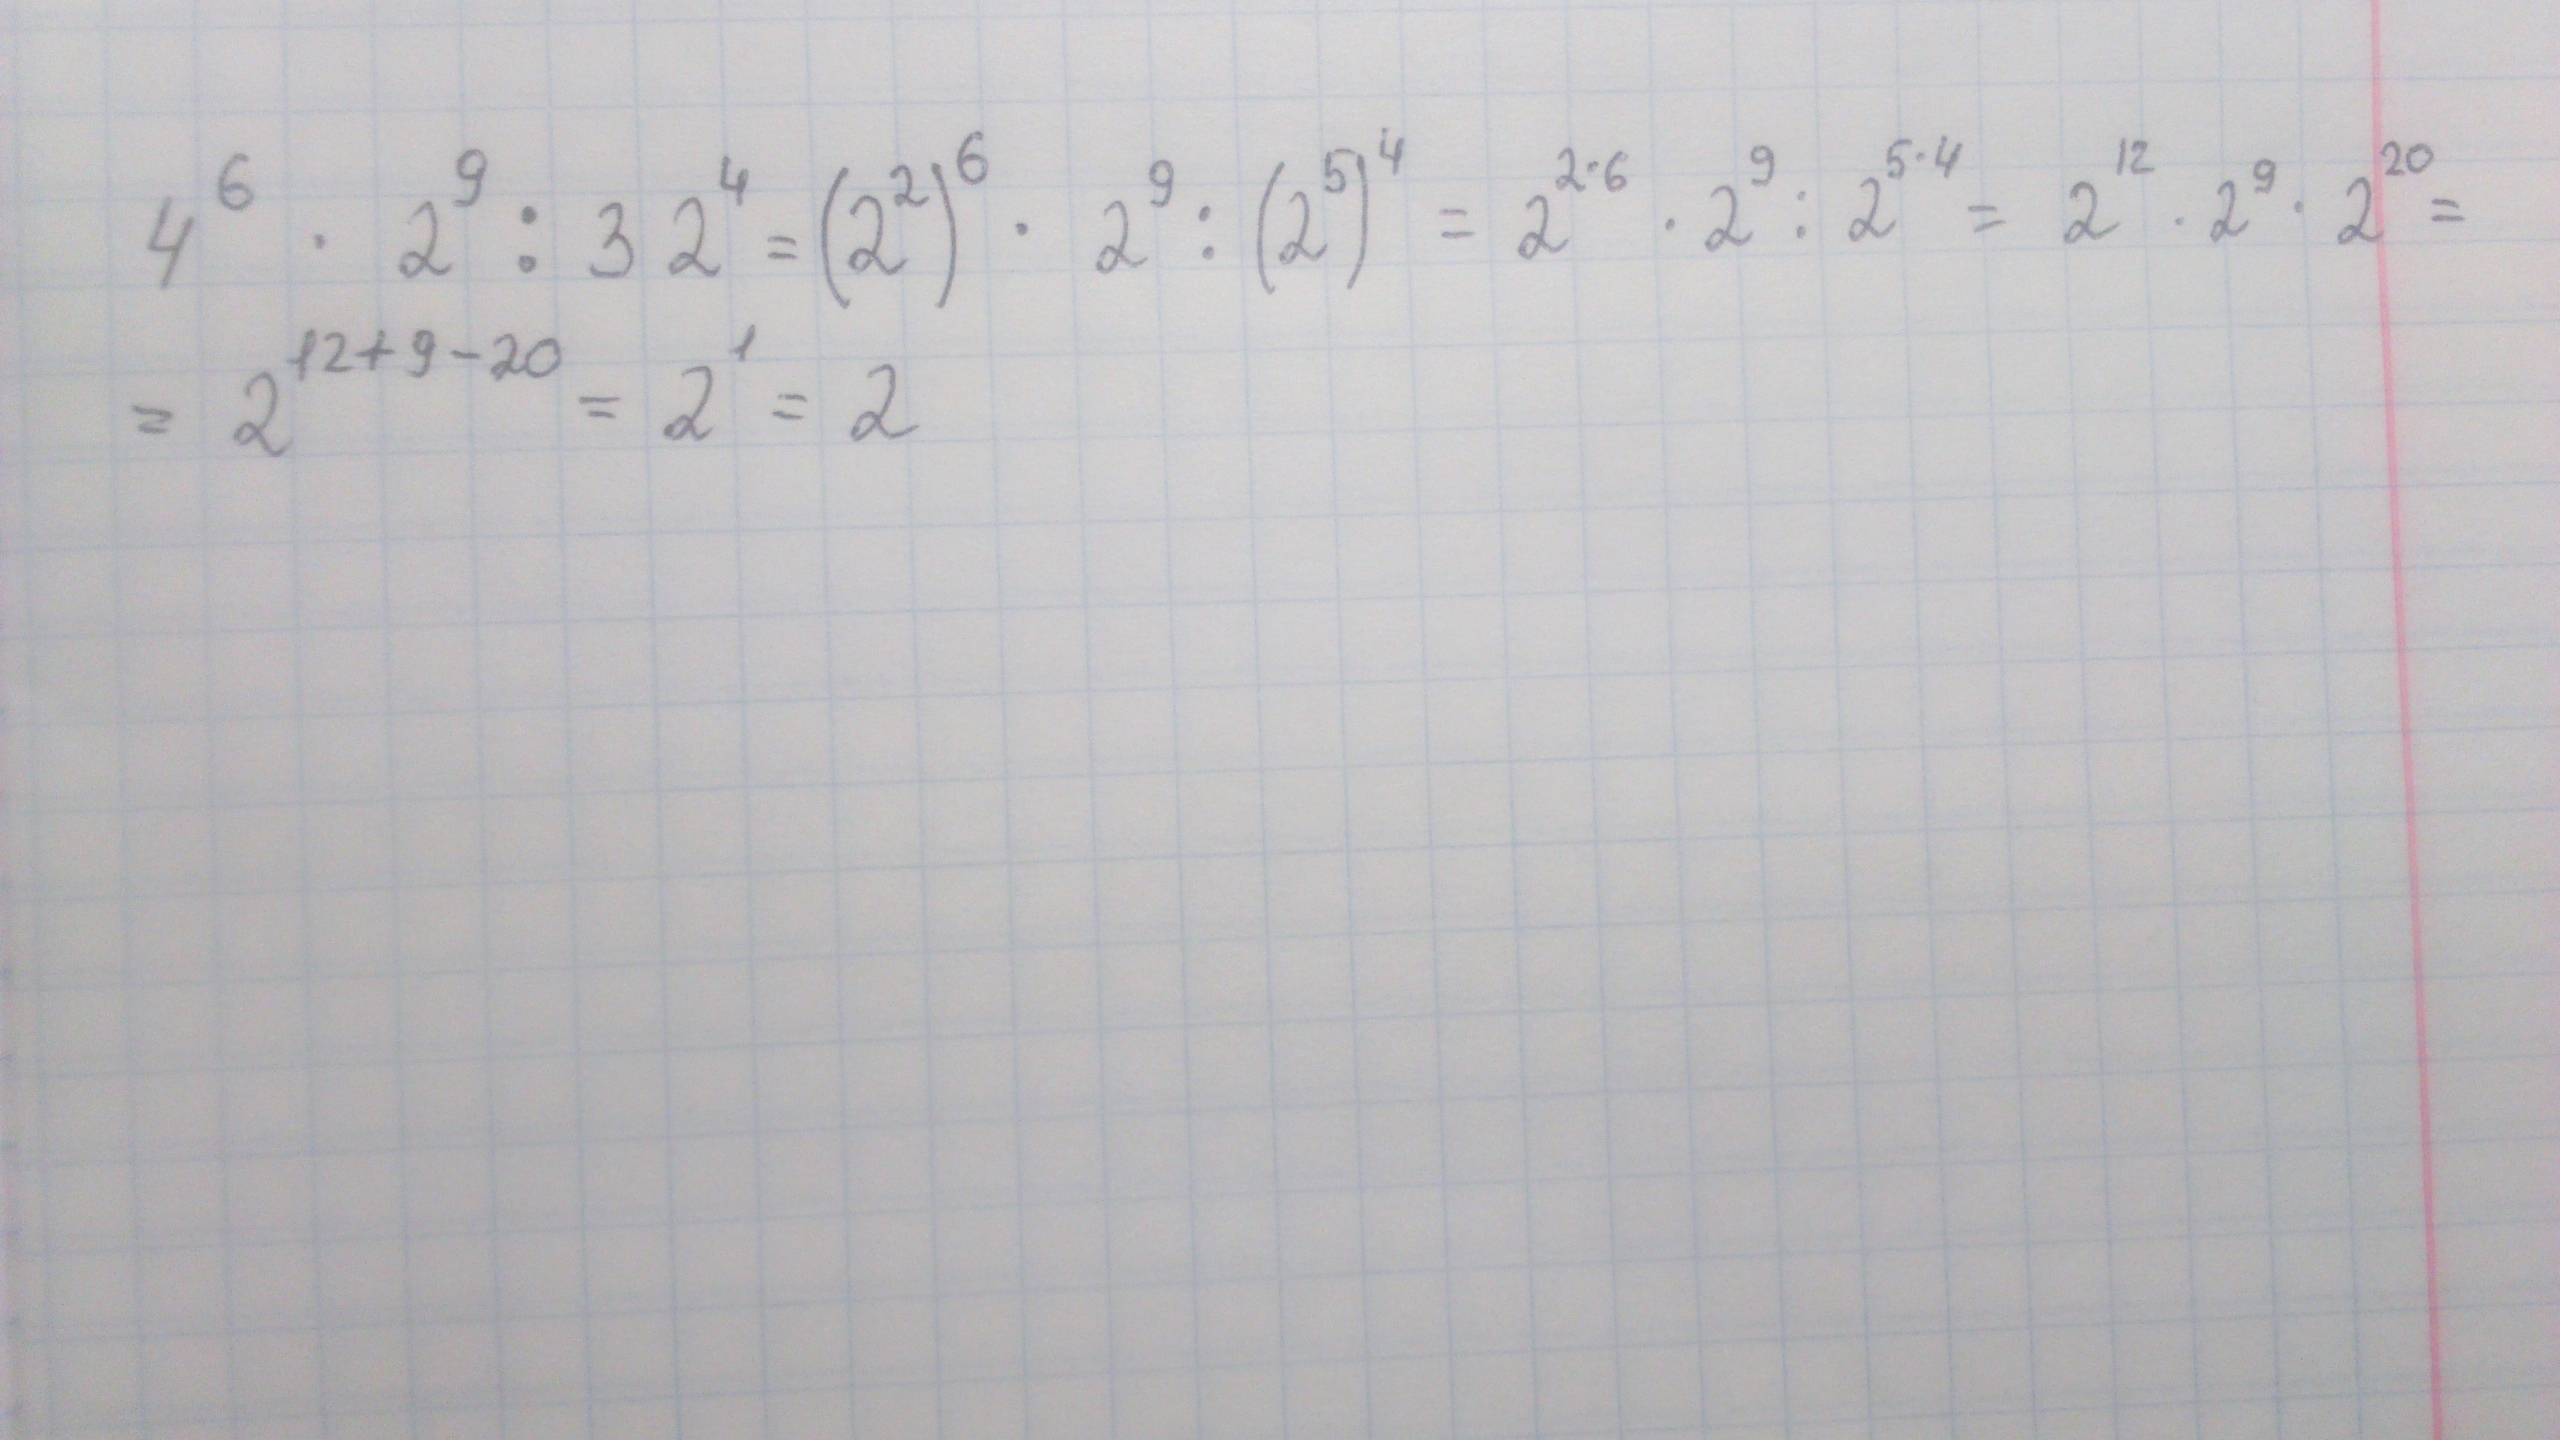 4⁶ · 2⁹ : 32⁴ = (2²)⁶ · 2⁹ : (2⁵)⁴ = 2²·⁶ · 2⁹ : 2⁵·⁴ = 2¹² · 2⁹ · 2²⁰ =
= 2¹²⁺⁹⁻²⁰ = 2¹ = 2